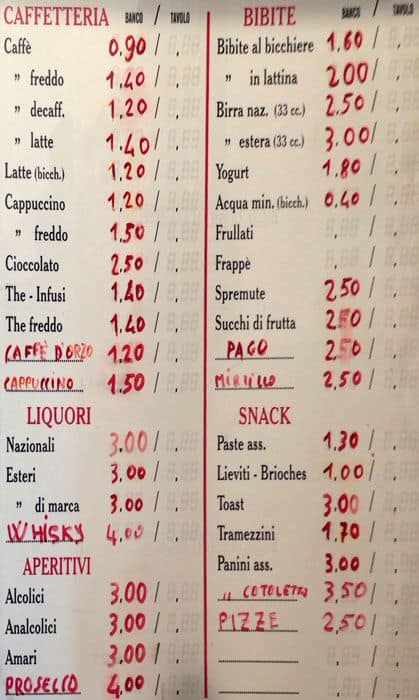 CAFFETTERIA BANCO / TAVOLO
Caffè 0.90 /
" freddo 1.40 /
" decaff. 1.20 /
" latte 1.40 /
Latte (bicch.) 1.20 /
Cappuccino 1.20 /
" freddo 1.50 /
Cioccolato 2.50 /
The - Infusi 1.40 /
The freddo 1.40 /
CAFFÈ D'ORZO 1.20 /
CAPPUCCINO 1.50 /
LIQUORI
Nazionali 3.00 /
Esteri 3.00 /
" di marca 3.00 /
WHISKY 4.00 /
APERITIVI
Alcolici 3.00 /
Analcolici 3.00 /
Amari 3.00 /
PROSECCO 4.00 /
BIBITE BANCO / TAVOLO
Bibite al bicchiere 1.60 /
" in lattina 200 /
Birra naz. (33 cc.) 2.50 /
" estera (33 cc.) 3.00 /
Yogurt 1.80 /
Acqua min. (bicch.) 0.40 /
Frullati /
Frappè /
Spremute 2.50 /
Succhi di frutta 2.50 /
PAGO 2.50 /
MIRTILLO 2.50 /
SNACK
Paste ass. 1.30 /
Lieviti - Brioches 1.00 /
Toast 3.00 /
Tramezzini 1.70 /
Panini ass. 3.00 /
" COTOLETTA 3.50 /
PIZZE 2.50 /